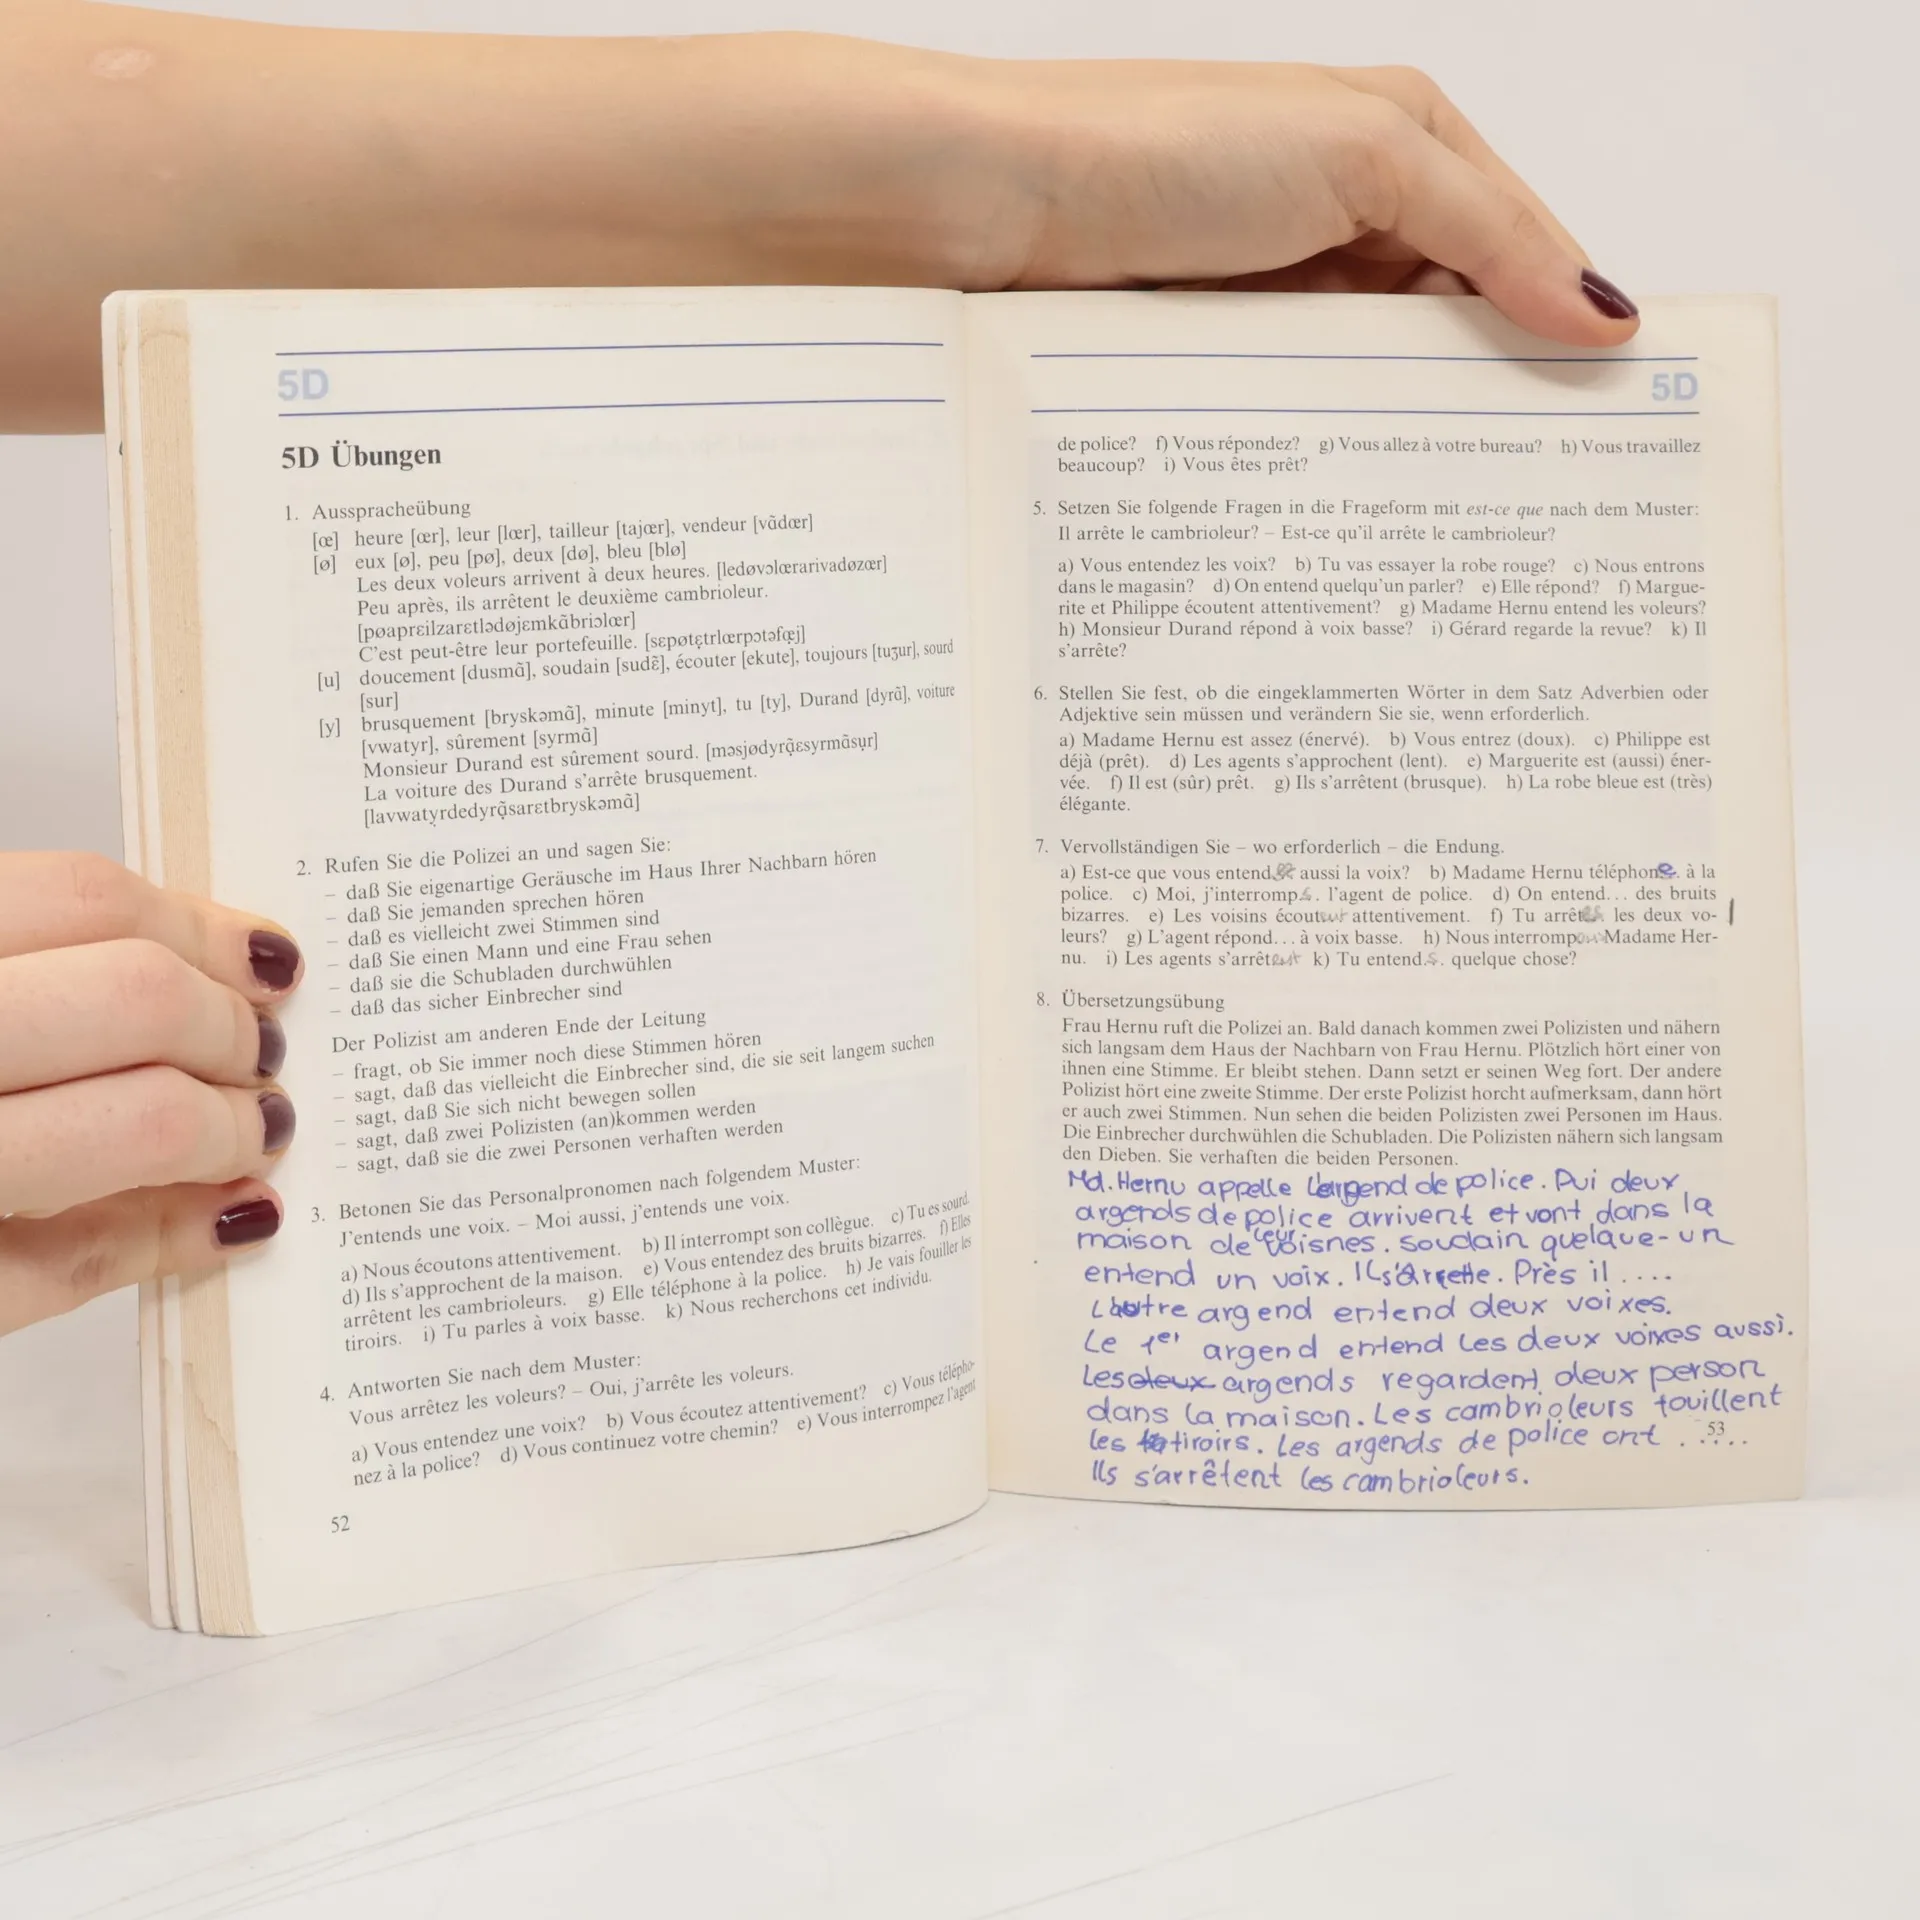 5D
5D Übungen
1. Ausspracheübung
[œ] heure [œr], leur [lœr], tailleur [tajœr], vendeur [vãdœr]
[ø] eux [ø], peu [pø], deux [dø], bleu [blø]
Les deux voleurs arrivent à deux heures. [ledøvɔlœrarivadøzœr]
Peu après, ils arrêtent le deuxième cambrioleur.
[pøaprɛilzarɛtlədøjɛmkãbriɔlœr]
C'est peut-être leur portefeuille. [sɛpøtɛtrlœrpɔtəfœj]
[u] doucement [dusmã], soudain [sudɛ̃], écouter [ekute], toujours [tuʒur], sourd
[sur]
[y] brusquement [bryskəmã], minute [minyt], tu [ty], Durand [dyrã], voiture
[vwatyr], sûrement [syrmã]
Monsieur Durand est sûrement sourd. [məsjødyrãɛsyrmãsur]
La voiture des Durand s'arrête brusquement.
[lavwatyrdedyrãsarɛtbryskəmã]
2. Rufen Sie die Polizei an und sagen Sie:
– daß Sie eigenartige Geräusche im Haus Ihrer Nachbarn hören
– daß Sie jemanden sprechen hören
– daß es vielleicht zwei Stimmen sind
– daß Sie einen Mann und eine Frau sehen
– daß sie die Schubladen durchwühlen
– daß das sicher Einbrecher sind
Der Polizist am anderen Ende der Leitung
– fragt, ob Sie immer noch diese Stimmen hören
– sagt, daß das vielleicht die Einbrecher sind, die sie seit langem suchen
– sagt, daß Sie sich nicht bewegen sollen
– sagt, daß zwei Polizisten (an)kommen werden
– sagt, daß sie die zwei Personen verhaften werden
3. Betonen Sie das Personalpronomen nach folgendem Muster:
J'entends une voix. – Moi aussi, j'entends une voix.
a) Nous écoutons attentivement. b) Il interrompt son collègue. c) Tu es sourd.
d) Ils s'approchent de la maison. e) Vous entendez des bruits bizarres. f) Elles
arrêtent les cambrioleurs. g) Elle téléphone à la police. h) Je vais fouiller les
tiroirs. i) Tu parles à voix basse. k) Nous recherchons cet individu.
4. Antworten Sie nach dem Muster:
Vous arrêtez les voleurs? – Oui, j'arrête les voleurs.
a) Vous entendez une voix? b) Vous écoutez attentivement? c) Vous télépho-
nez à la police? d) Vous continuez votre chemin? e) Vous interrompez l'agent
52
5D
de police? f) Vous répondez? g) Vous allez à votre bureau? h) Vous travaillez
beaucoup? i) Vous êtes prêt?
5. Setzen Sie folgende Fragen in die Frageform mit est-ce que nach dem Muster:
Il arrête le cambrioleur? – Est-ce qu'il arrête le cambrioleur?
a) Vous entendez les voix? b) Tu vas essayer la robe rouge? c) Nous entrons
dans le magasin? d) On entend quelqu'un parler? e) Elle répond? f) Margue-
rite et Philippe écoutent attentivement? g) Madame Hernu entend les voleurs?
h) Monsieur Durand répond à voix basse? i) Gérard regarde la revue? k) Il
s'arrête?
6. Stellen Sie fest, ob die eingeklammerten Wörter in dem Satz Adverbien oder
Adjektive sein müssen und verändern Sie sie, wenn erforderlich.
a) Madame Hernu est assez (énervé). b) Vous entrez (doux). c) Philippe est
déjà (prêt). d) Les agents s'approchent (lent). e) Marguerite est (aussi) éner-
vée. f) Il est (sûr) prêt. g) Ils s'arrêtent (brusque). h) La robe bleue est (très)
élégante.
7. Vervollständigen Sie – wo erforderlich – die Endung.
a) Est-ce que vous entendez aussi la voix? b) Madame Hernu téléphone. à la
police. c) Moi, j'interromps. l'agent de police. d) On entend... des bruits
bizarres. e) Les voisins écoutent attentivement. f) Tu arrêtes les deux vo-
leurs? g) L'agent répond... à voix basse. h) Nous interrompons Madame Her-
nu. i) Les agents s'arrêtent k) Tu entend.s. quelque chose?
8. Übersetzungsübung
Frau Hernu ruft die Polizei an. Bald danach kommen zwei Polizisten und nähern
sich langsam dem Haus der Nachbarn von Frau Hernu. Plötzlich hört einer von
ihnen eine Stimme. Er bleibt stehen. Dann setzt er seinen Weg fort. Der andere
Polizist hört eine zweite Stimme. Der erste Polizist horcht aufmerksam, dann hört
er auch zwei Stimmen. Nun sehen die beiden Polizisten zwei Personen im Haus.
Die Einbrecher durchwühlen die Schubladen. Die Polizisten nähern sich langsam
den Dieben. Sie verhaften die beiden Personen.
Md. Hernu appelle l'argend de police. Pui deux
argends de police arrivent et vont dans la
maison de leur voisnes. soudain quelque-un
entend un voix. Il s'Arrette. Près il ....
L'autre argend entend deux voixes.
Le 1er argend entend les deux voixes aussi.
Les deux argends regardent deux person
dans la maison. Les cambrioleurs fouillent
les tiroirs. Les argends de police ont .....
Ils s'arrêtent les cambrioleurs.
53